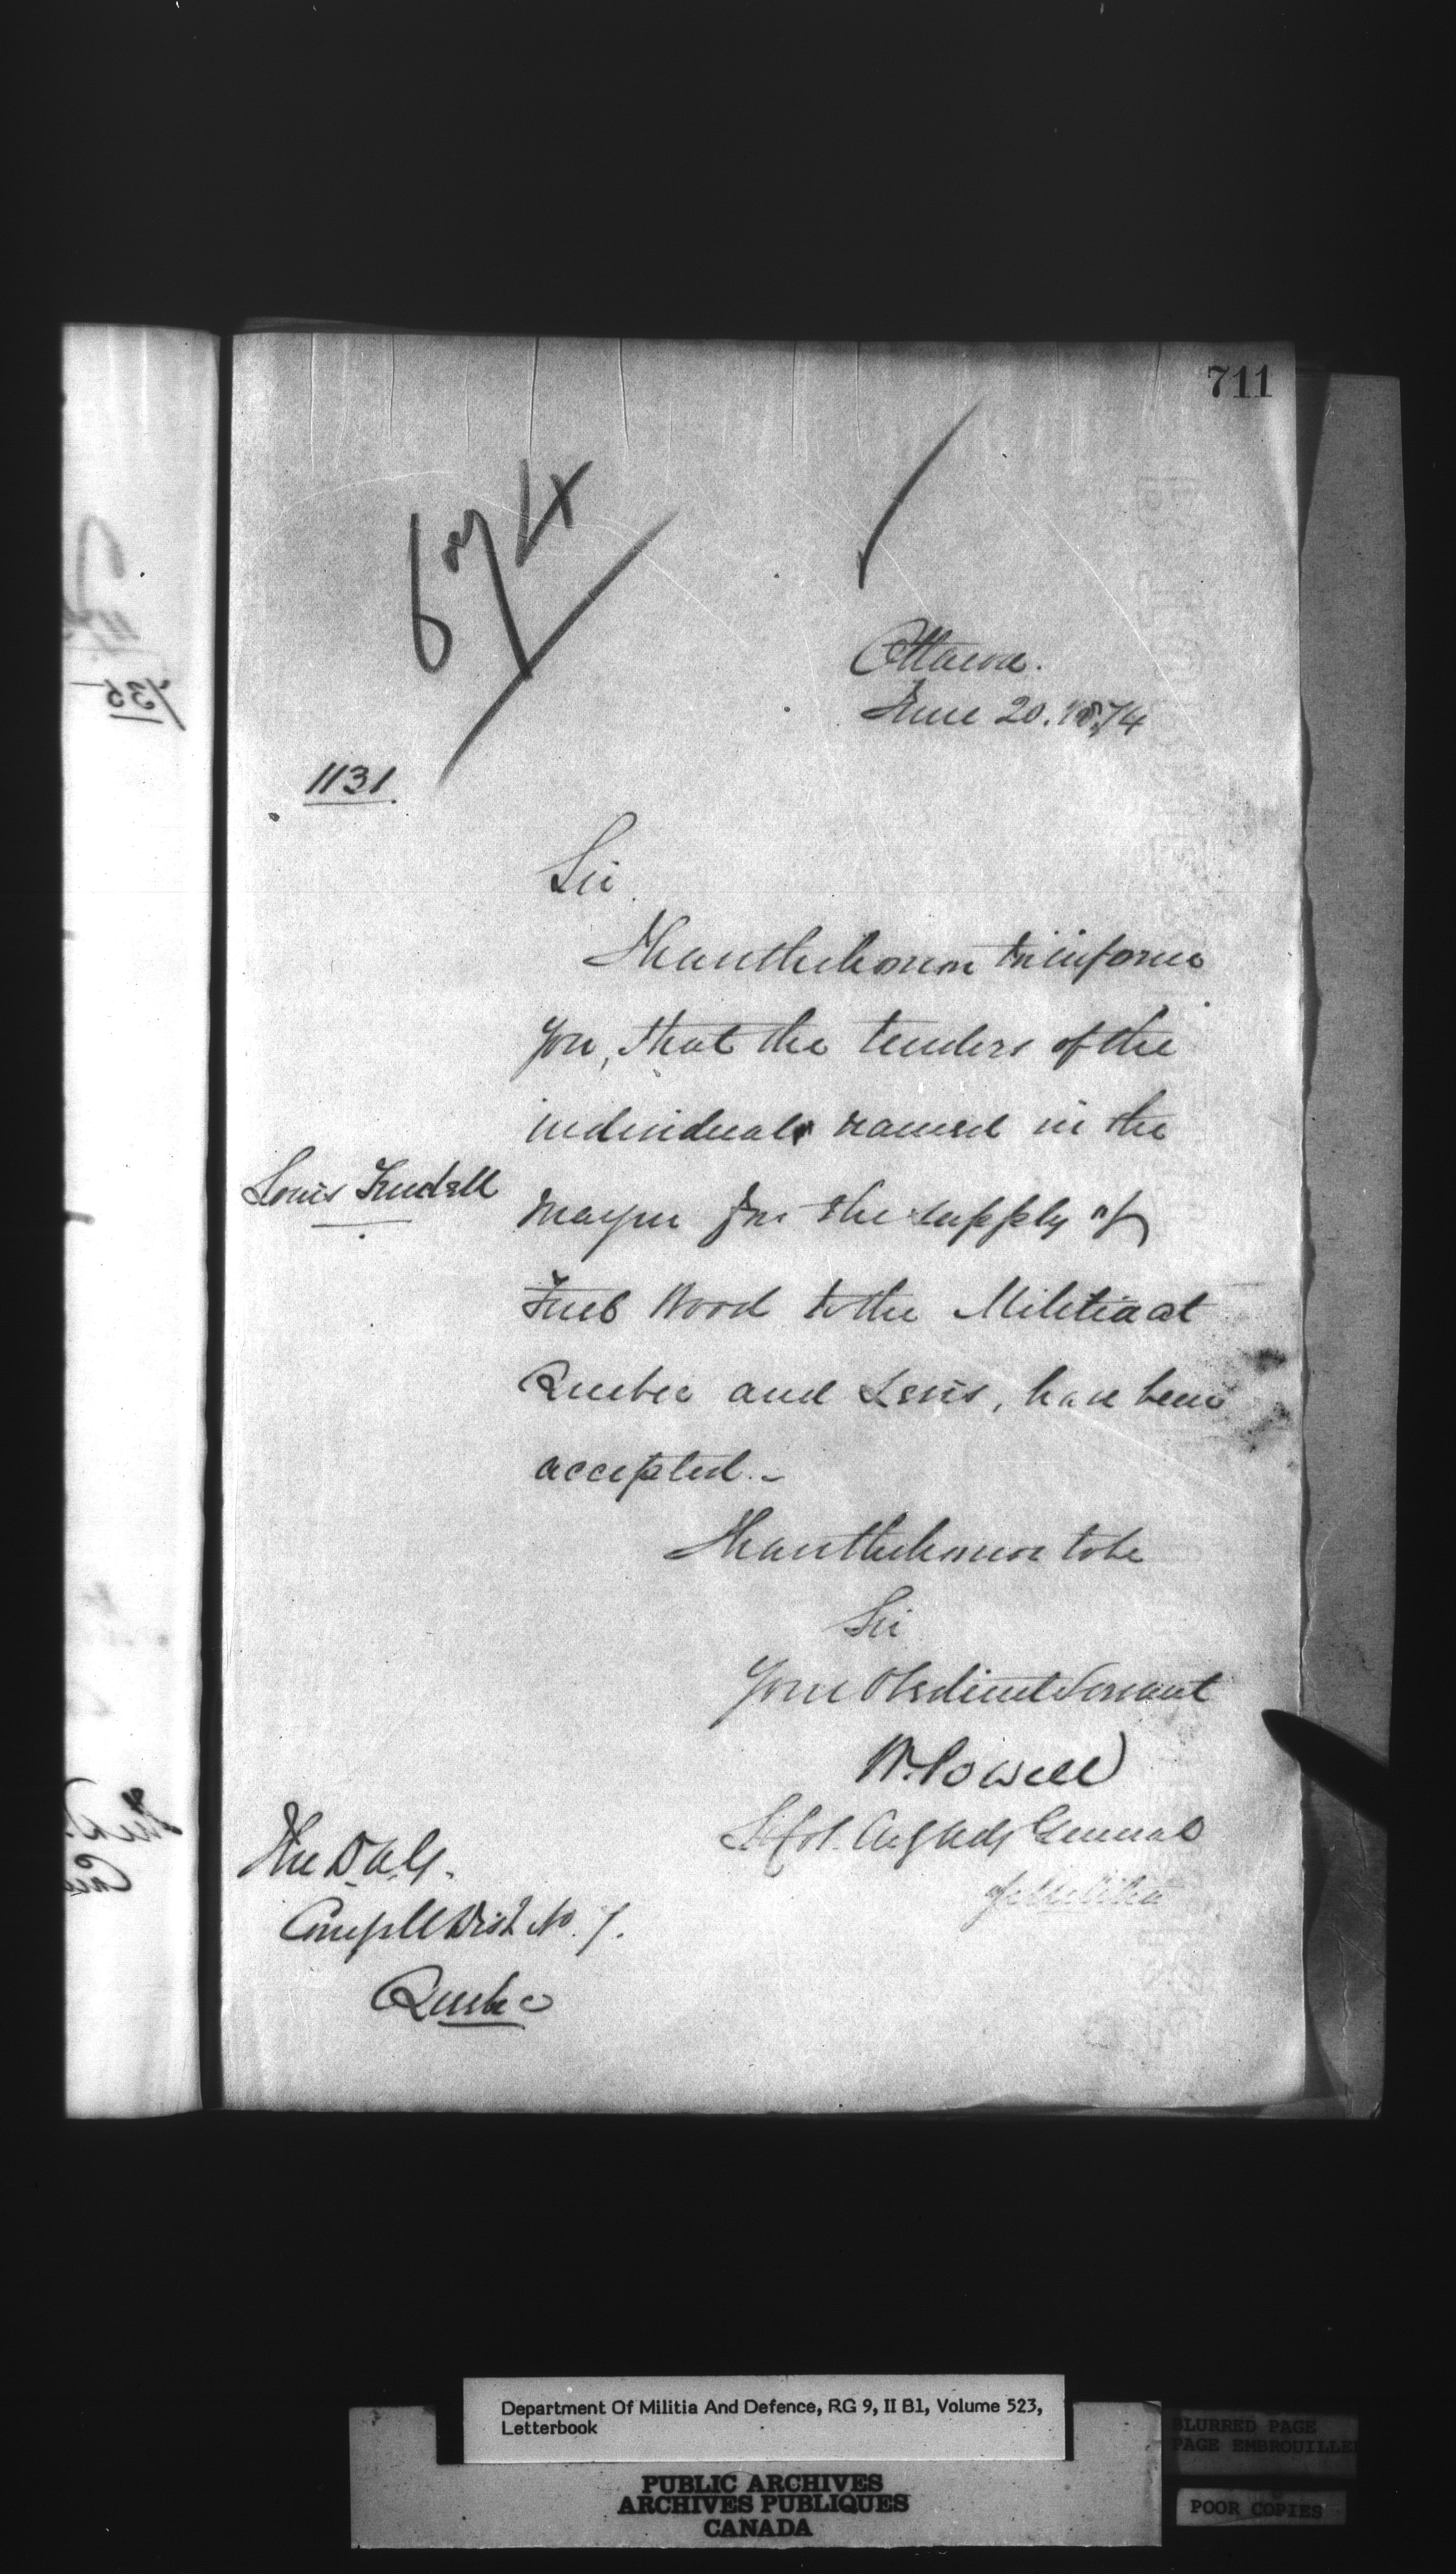 711
Ottawa.
June 20. 1874
1131.
Sir
I have the honor to inform
you, that the tenders of the
individual named in the
Louis Trudell
margin for the supply of
Fuel Wood to the Militia at
Quebec and Levis, have been
accepted.-
I have the honor to be
Sir
Your Obedient Servant
W. Powell
Lt Col. Actg Adj General
of Militia
The D.A.G.
Comg Ml Dist No. 7.
Quebec
735
Department Of Militia And Defence, RG 9, II B1, Volume 523,
Letterbook
PUBLIC ARCHIVES
ARCHIVES PUBLIQUES
CANADA
BLURRED PAGE
PAGE EMBROUILLEE
POOR COPIES